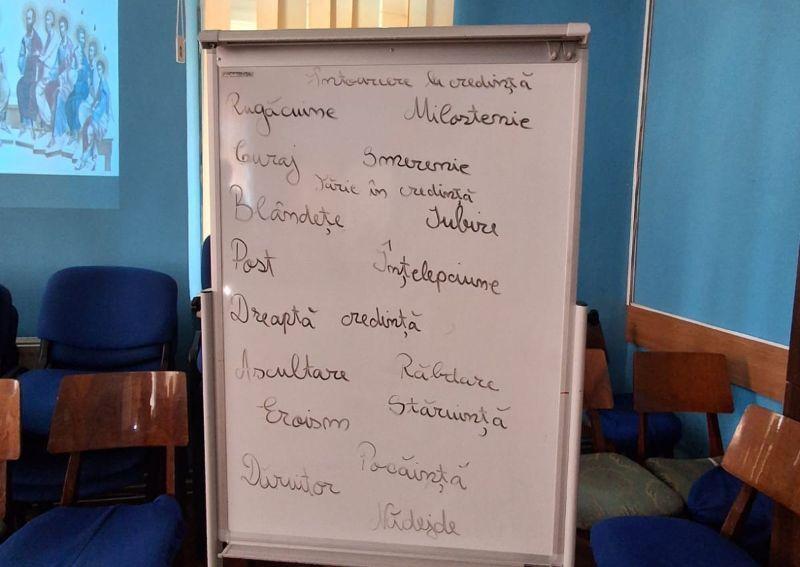 Întoarcere la credință
Rugăciune Milostenie
Curaj Smerenie
Tărie în credință
Blândețe Iubire
Post Înțelepciune
Dreaptă credință
Ascultare Răbdare
Eroism Stăruință
Pocăință
Dăruitor
Nădejde